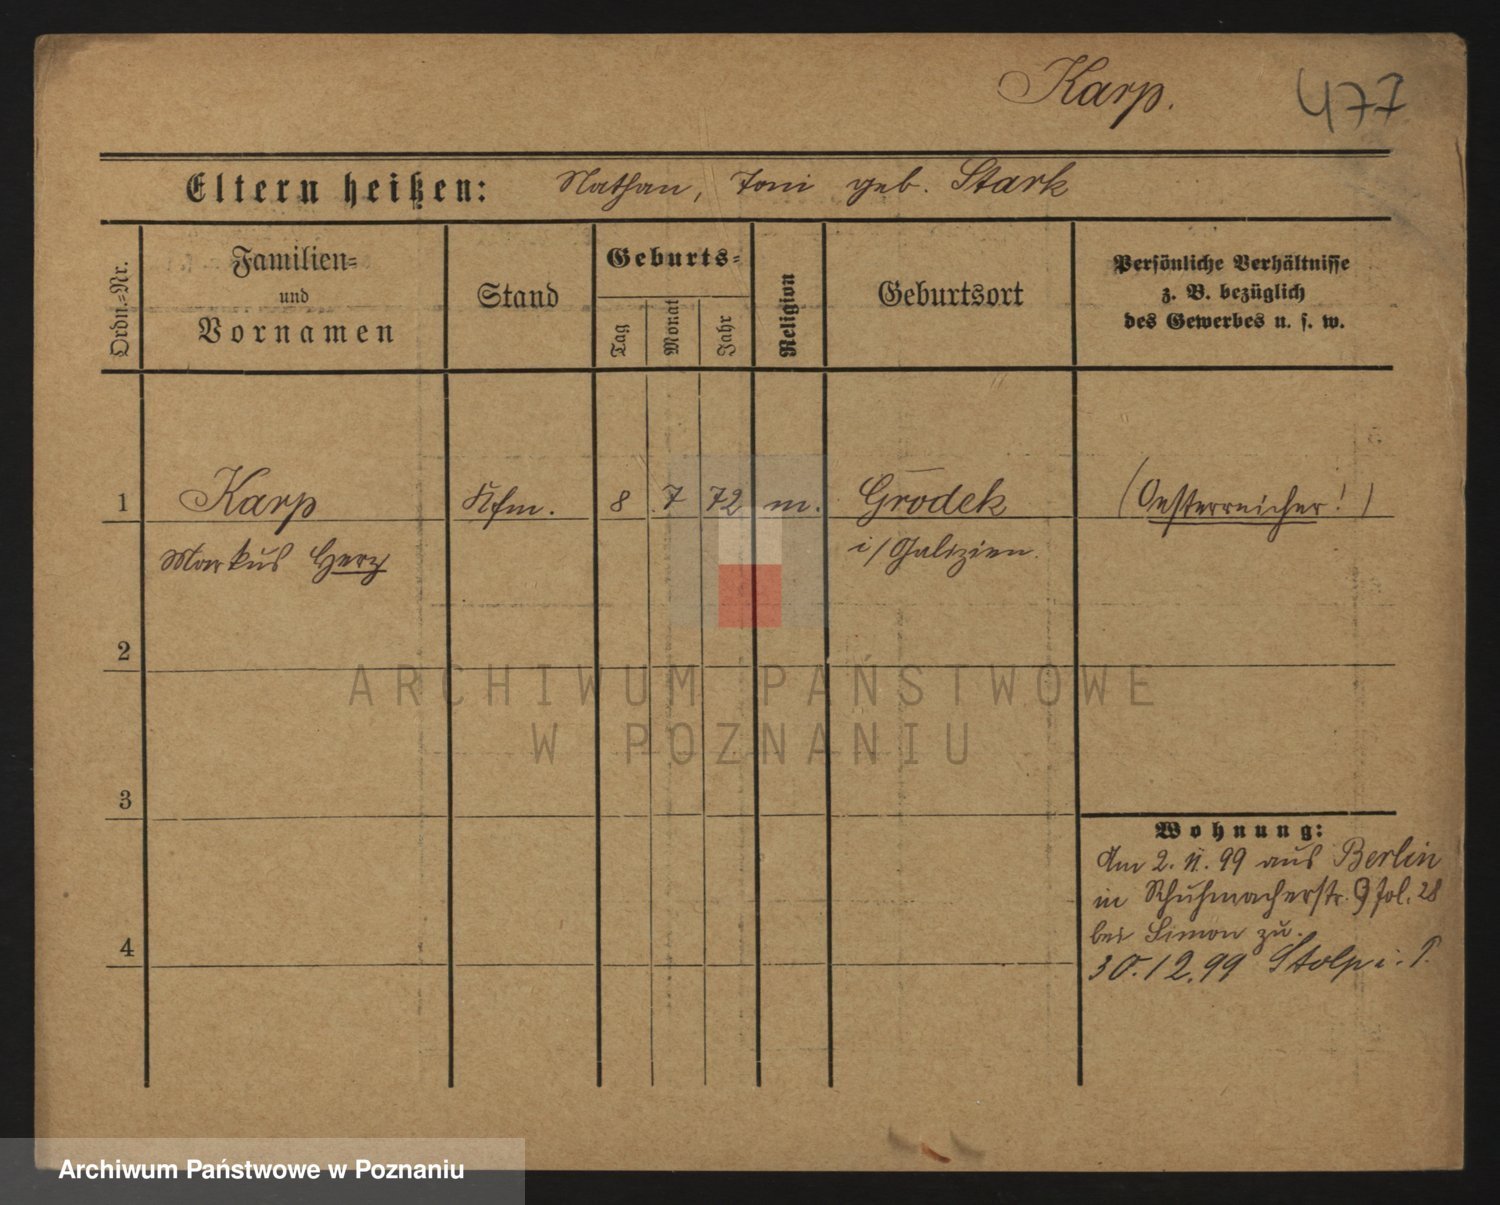 Karp. 477
Eltern heißen: Nathan, Toni geb. Stark
Ordn.-Nr. Familien- und Vornamen Stand Geburts- Tag Monat Jahr Religion Geburtsort Persönliche Verhältnisse z. B. bezüglich des Gewerbes u. s. w.
1 Karp Kfm. 8 7 72 m. Grodek (Oesterreicher!)
Markus Herz i/Galizien.
2
ARCHIWUM PAŃSTWOWE
W POZNANIU
3
Wohnung:
Am 2. 11. 99 aus Berlin
in Schuhmacherstr. 9 fol. 28
bei Simon zu.
4
30.12.99 Stolp i. P.
Archiwum Państwowe w Poznaniu